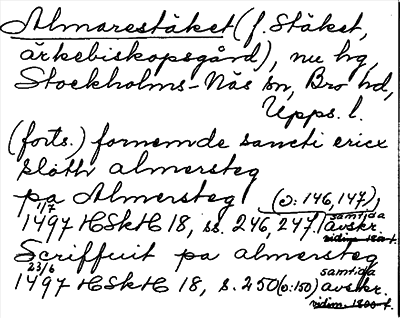 Almarestäket (f. Stäket,
ärkebiskopsgård), nu hg,
Stockholms-Näs sn, Bro hd,
Upps. l.
(forts.) fornemde sancti ericx
slóth almersteg
pa Almersteg (o: 146, 147)
1/7 1497 HSkH 18, ss. 246, 247. samtida avskr.
Scriffuit pa almersteg
23/6 1497 HSkH 18, s. 250 (o: 150) samtida avskr.